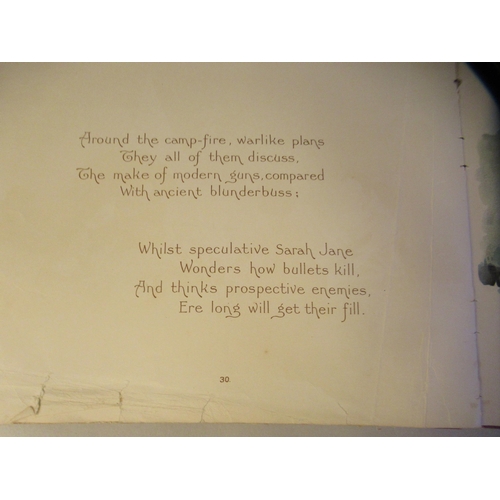 Around the camp-fire, warlike plans
They all of them discuss,
The make of modern guns, compared
With ancient blunderbuss;
Whilst speculative Sarah Jane
Wonders how bullets kill,
And thinks prospective enemies,
Ere long will get their fill.
30.